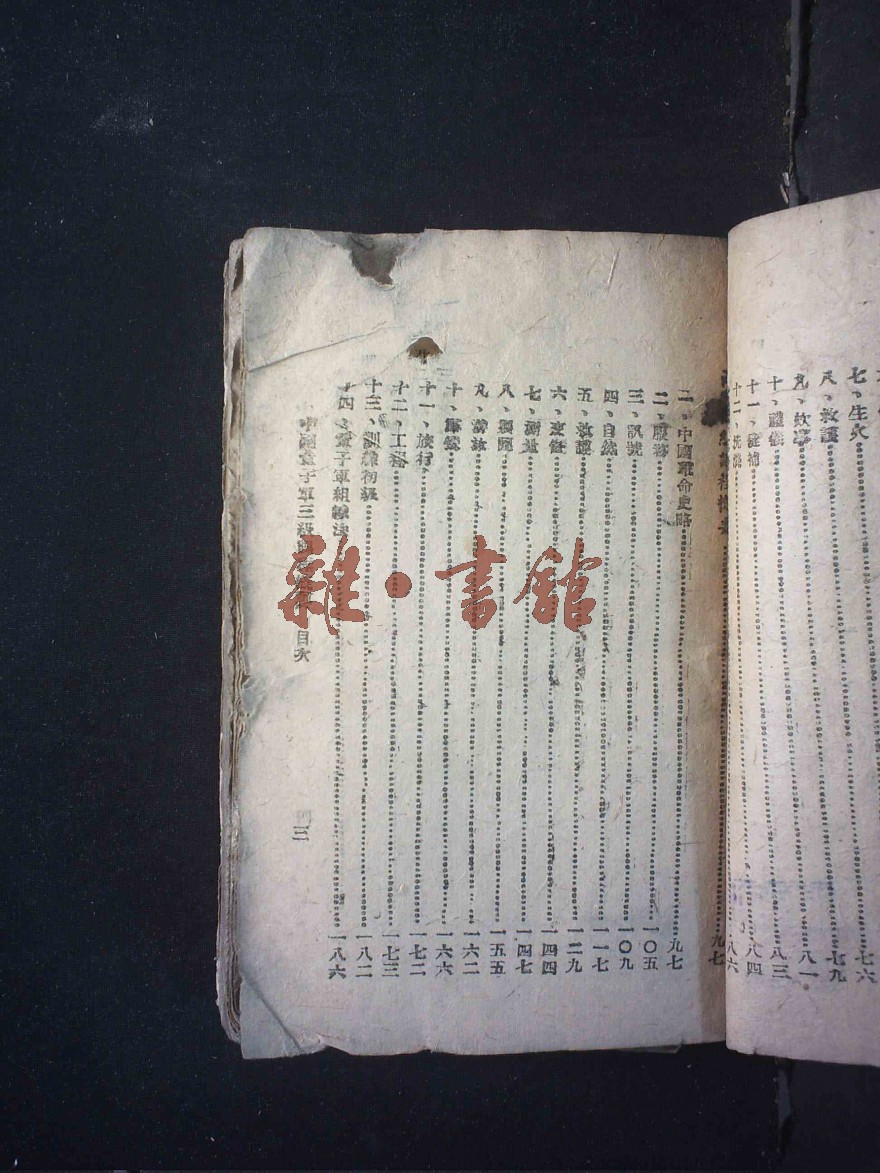 七、生火⋯⋯七六
八、救護⋯⋯七九
九、炊事⋯⋯八一
十、禮儀⋯⋯八三
十一、縫補⋯⋯八四
十二、洗⋯⋯八六
⋯⋯九七
一、中國革命史略⋯⋯九七
二、服務⋯⋯一〇五
三、訊號⋯⋯一〇九
四、自然⋯⋯一一七
五、救護⋯⋯一二九
六、⋯⋯一四四
七、測量⋯⋯一四七
八、⋯⋯一五五
九、游泳⋯⋯一六二
十、露營⋯⋯一六六
十一、旅行⋯⋯一七二
十二、工務⋯⋯一七三
十三、訓練初級⋯⋯一八二
十四、童子軍組織法⋯⋯一八六
中國童子軍三級 目次
三
雜·書館